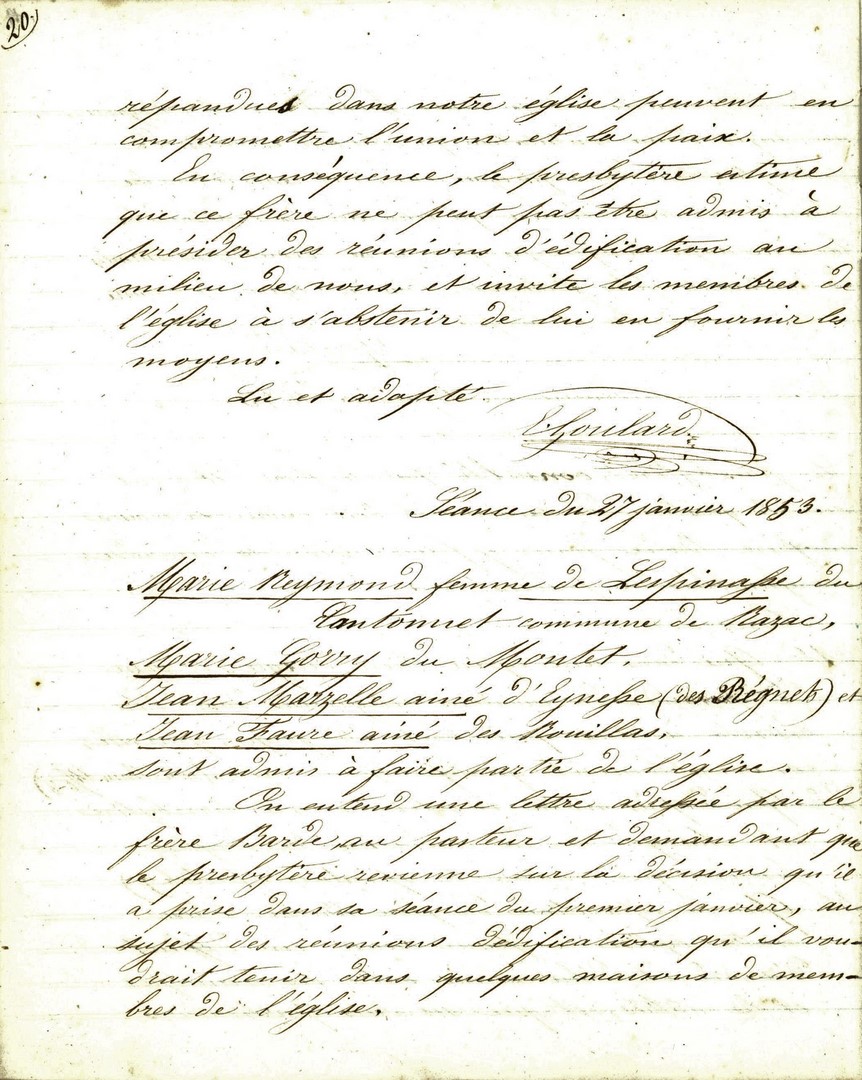 20.
répandues dans notre église peuvent en
compromettre l'union et la paix.
En conséquence, le presbytère estime
que ce frère ne peut pas être admis à
présider des réunions d'édification au
milieu de nous, et invite les membres de
l'église à s'abstenir de lui en fournir les
moyens.
Lu et adopté.
E. Goulard
Séance du 27 janvier 1853.
Marie Reymond femme de Lespinasse du
Cantonnet commune de Razac,
Marie Gorry du Montet,
Jean Marzelle ainé d'Eynesse (des Régnets) et
Jean Faure ainé des Rouillas,
sont admis à faire partie de l'église.
On entend une lettre adressée par le
frère Barde, au pasteur et demandant que
le presbytère revienne sur la décision qu'il
a prise dans sa séance du premier janvier, au
sujet des réunions dédification qu'il vou-
drait tenir dans quelques maisons de mem-
bres de l'église.